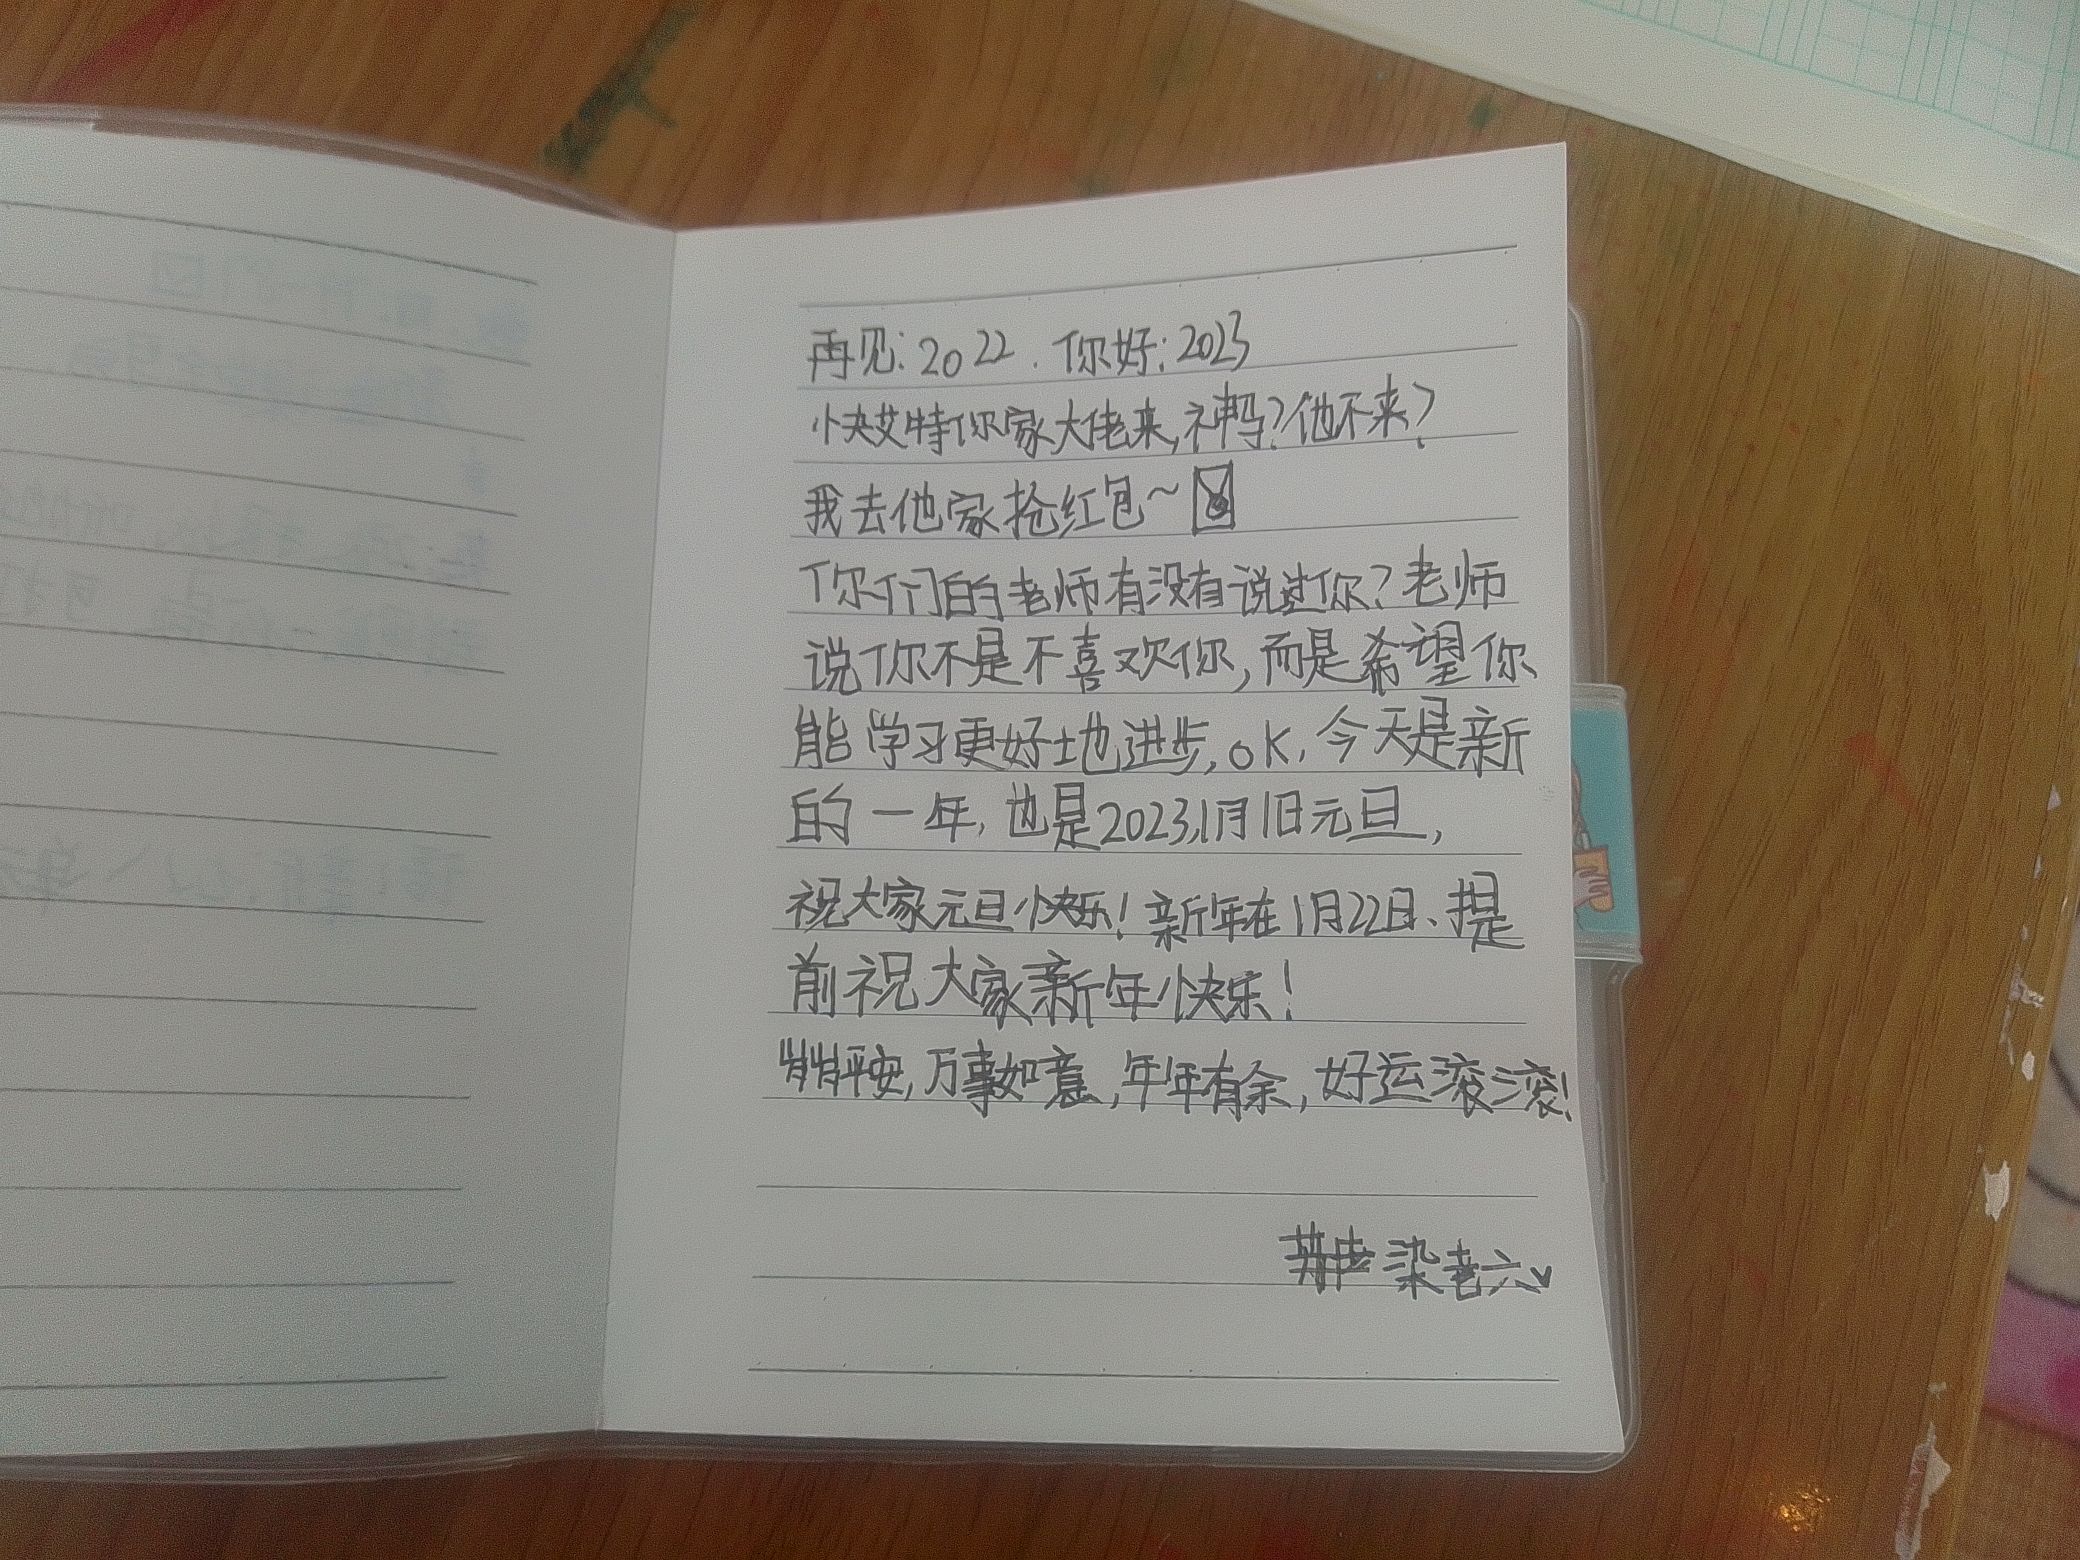 再见:2022. 你好:2023
快艾特你家大佬来,神吗?他不来?
我去他家抢红包~
你们的老师有没有说过你?老师
说你不是不喜欢你,而是希望你
能学习更好地进步,OK,今天是新
的一年,也是2023,1月1日元旦,
祝大家元旦快乐!新年在1月22日、提
前祝大家新年快乐!
岁岁平安,万事如意,年年有余,好运滚滚!
染老六